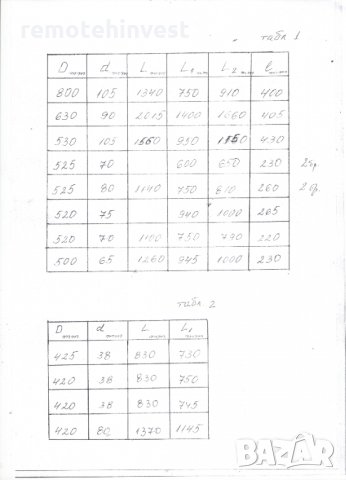 remotehinvest
табл 1
D d L L l
800 105 1340 750 910 400
630 90 2015 1400 1660 405
530 105 930 430
525 70 600 650 230 2бр
525 80 1140 750 810 260 2бр
520 75 940 1000 265
520 70 1100 750 790 220
500 65 1260 945 1000 230
табл 2
D d L L1
425 38 830 730
420 38 830 750
420 38 830 745
420 80 1370 1145
BAZAR